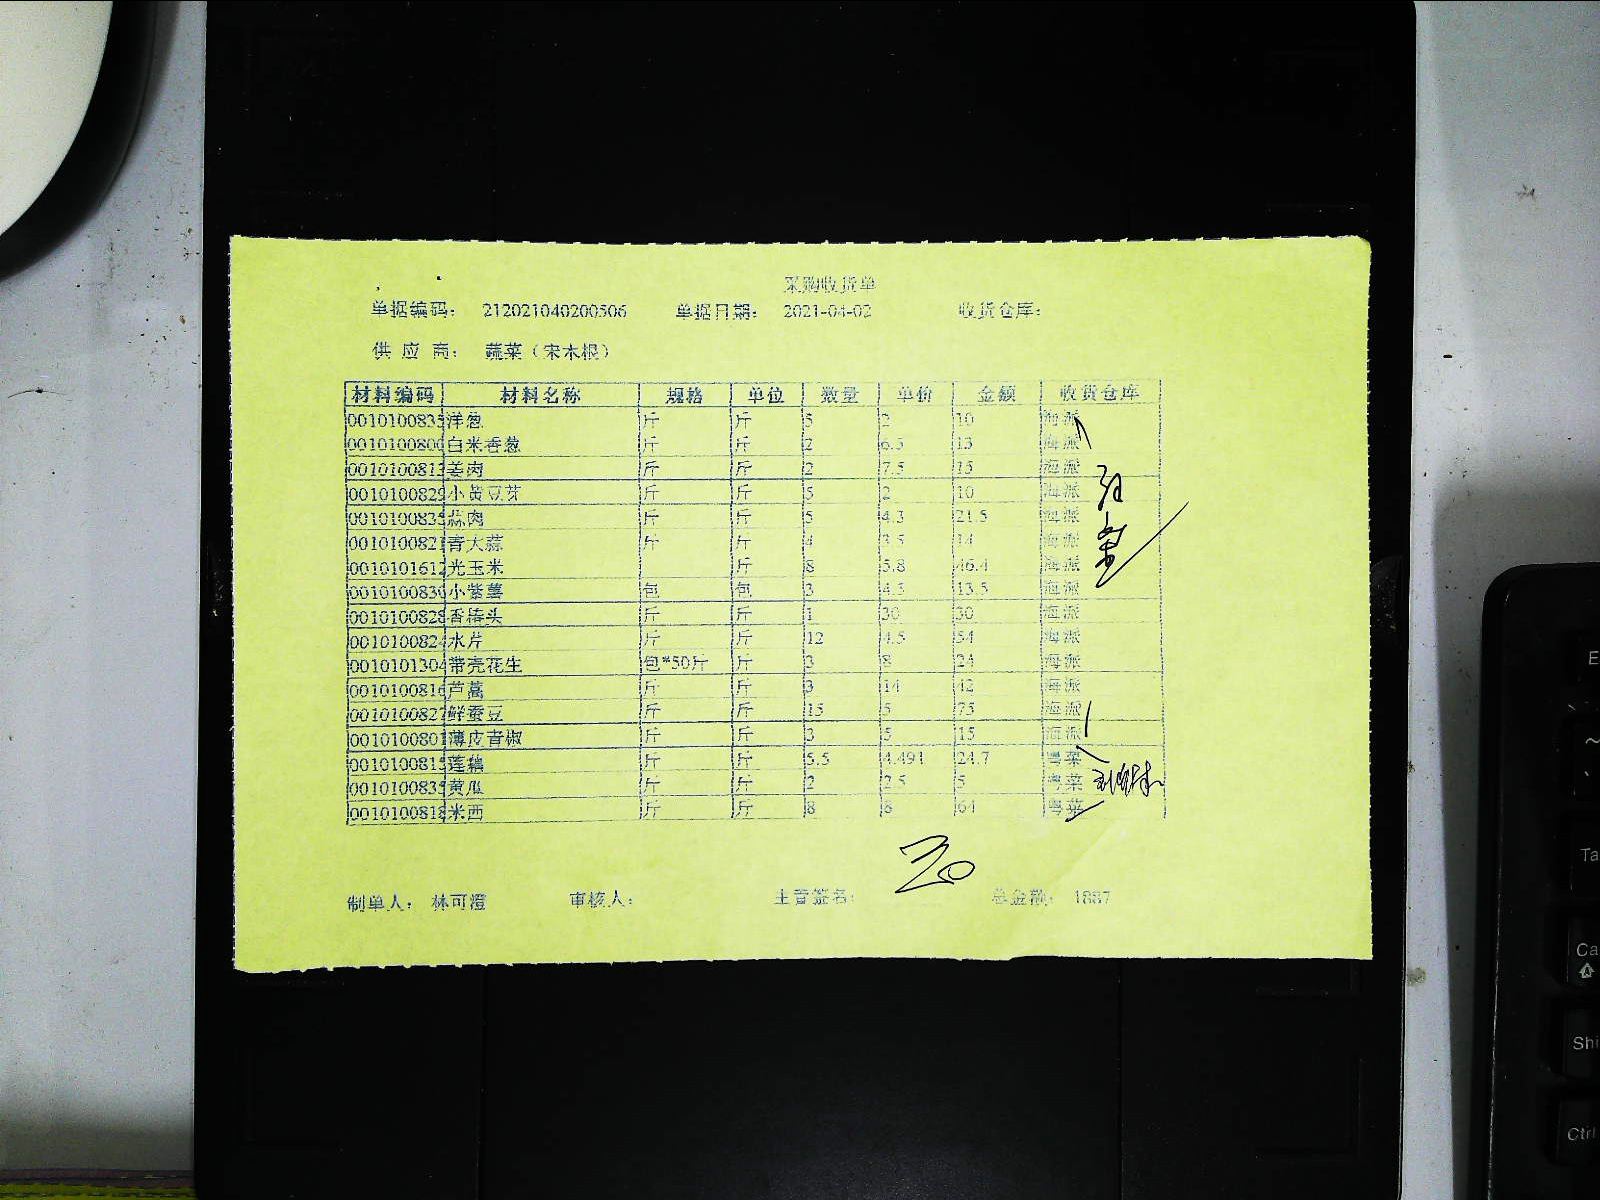 采购收货单
单据编码： 212021040200506 单据日期： 2021-04-02 收货仓库：
供应商： 蔬菜（宋木根）
材料编码 材料名称 规格 单位 数量 单价 金额 收货仓库
0010100835 洋葱 斤 斤 5 2 10 海派
0010100800 白米香葱 斤 斤 2 6.5 13 海派
0010100813 姜肉 斤 斤 2 7.5 15 海派
0010100829 小黄豆芽 斤 斤 5 2 10 海派
0010100835 蒜肉 斤 斤 5 4.3 21.5 海派
0010100821 青大蒜 斤 斤 4 3.5 14 海派
0010101612 光玉米 斤 8 5.8 46.4 海派
0010100836 小紫薯 包 包 3 4.5 13.5 海派
0010100828 香椿头 斤 斤 1 30 30 海派
0010100824 水芹 斤 斤 12 4.5 54 海派
0010101304 带壳花生 包*50斤 斤 3 8 24 海派
0010100816 芦蒿 斤 斤 3 14 42 海派
0010100827 鲜蚕豆 斤 斤 15 5 75 海派
0010100801 薄皮青椒 斤 斤 3 5 15 海派
0010100815 莲藕 斤 斤 5.5 4.491 24.7 粤菜
0010100835 黄瓜 斤 斤 2 2.5 5 粤菜
0010100818 米西 斤 斤 8 8 64 粤菜
制单人： 林可澄 审核人： 主管签名： 总金额： 1887
E
~
Ta
Ca
Shi
Ctrl